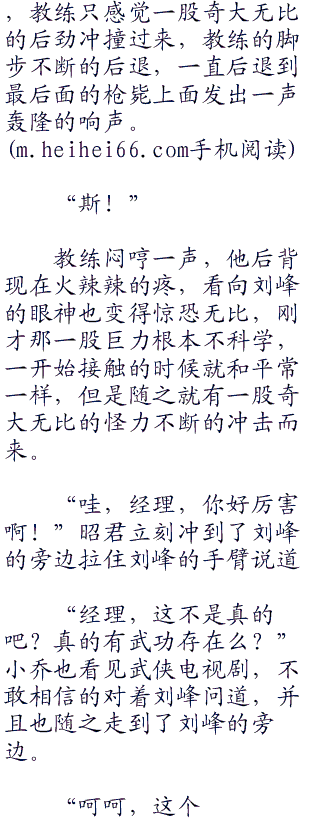 ，教练只感觉一股奇大无比
的后劲冲撞过来，教练的脚
步不断的后退，一直后退到
最后面的枪毙上面发出一声
轰隆的响声。
(m.heihei66.com手机阅读)
“斯！”
教练闷哼一声，他后背
现在火辣辣的疼，看向刘峰
的眼神也变得惊恐无比，刚
才那一股巨力根本不科学，
一开始接触的时候就和平常
一样，但是随之就有一股奇
大无比的怪力不断的冲击而
来。
“哇，经理，你好厉害
啊！”昭君立刻冲到了刘峰
的旁边拉住刘峰的手臂说道
“经理，这不是真的
吧？真的有武功存在么？”
小乔也看见武侠电视剧，不
敢相信的对着刘峰问道，并
且也随之走到了刘峰的旁
边。
“呵呵，这个